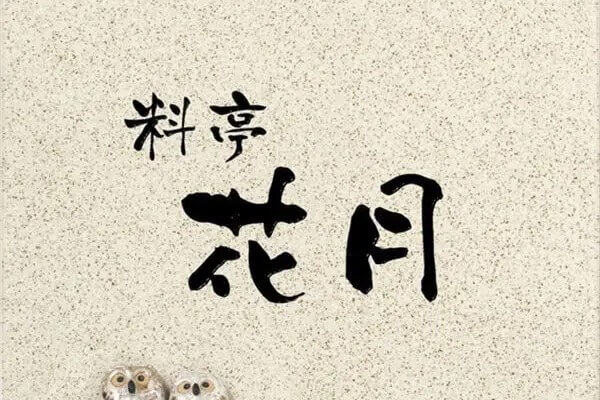 料亭
花月